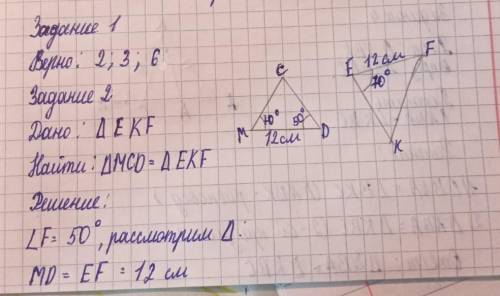 Задание 1
Верно: 2; 3; 6
Задание 2
Дано: Δ EKF
Найти: ΔMCD = Δ EKF
Решение:
∠F = 50°, рассмотрим Δ:
MD = EF = 12 см
C
70°
50°
M
D
12см
E
12см
F
70°
K